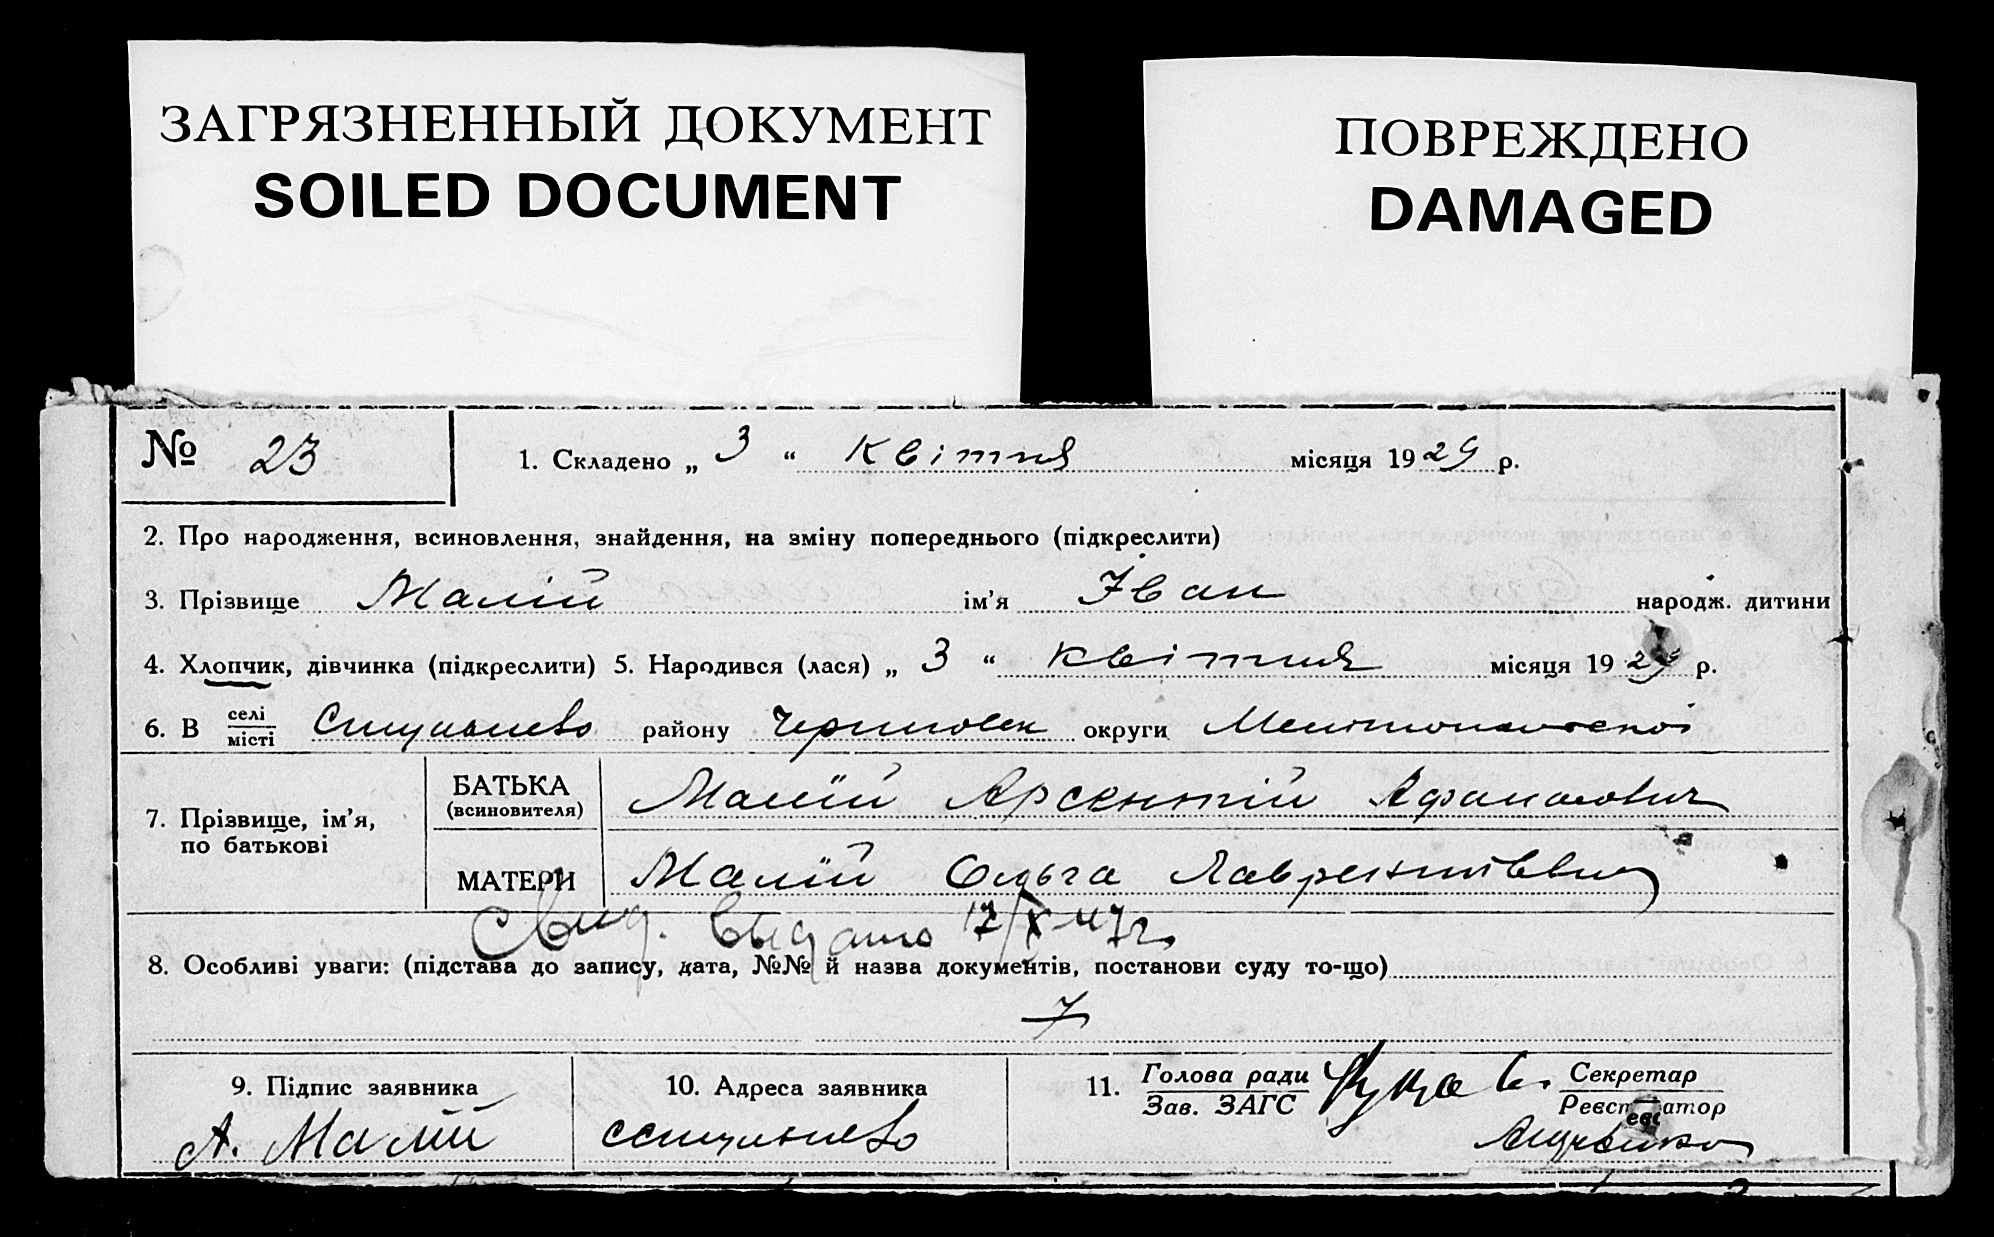 ЗАГРЯЗНЕННЫЙ ДОКУМЕНТ
SOILED DOCUMENT
ПОВРЕЖДЕНО
DAMAGED
№ 23
1. Складено „ 3 “ Квітня місяця 1929 р.
2. Про народження, всиновлення, знайдення, на зміну попереднього (підкреслити)
3. Прізвище Малій ім’я Іван народж. дитини
4. Хлопчик, дівчинка (підкреслити) 5. Народився (лася) „ 3 “ квітня місяця 1929 р.
6. В селі
місті
району округи
7. Прізвище, ім’я,
по батькові
БАТЬКА
(всиновителя)
Малій Арсентій Афанасович
МАТЕРИ Малій Ольга
Свид. выдано 17/X 47 г.
8. Особливі уваги: (підстава до запису, дата, №№ й назва документів, постанови суду то-що)
9. Підпис заявника
А. Малій
10. Адреса заявника
11. Голова ради
Зав. ЗАГС
Секретар